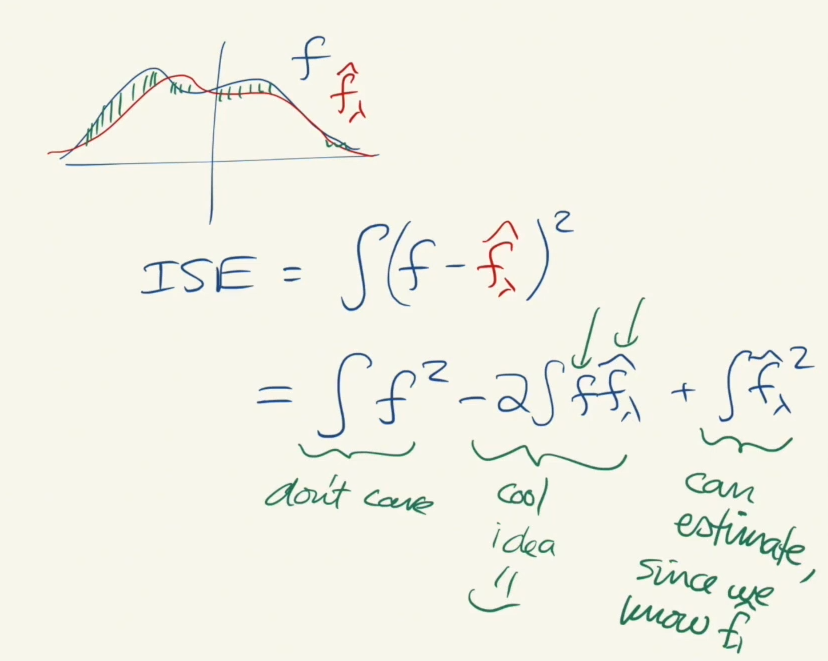 f
f̂_λ
ISE = ∫(f - f̂_λ)²
= ∫f² - 2∫f f̂_λ + ∫f̂_λ²
don't care
cool
idea
can
estimate,
since we
know f̂_λ